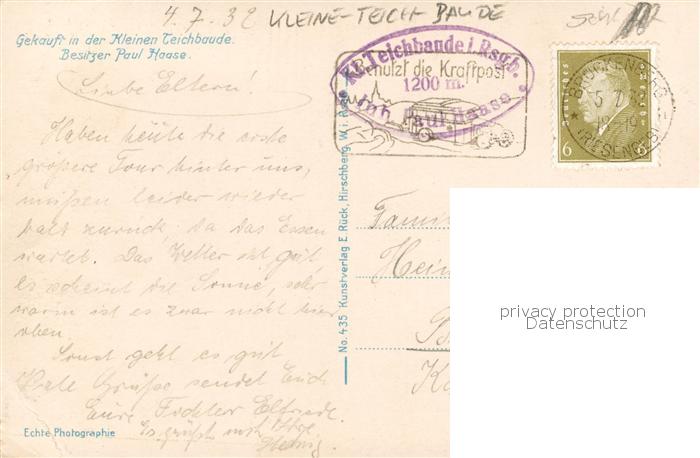 4.7.32 KLEINE-TEICH BAUDE
Gekauft in der Kleinen Teichbaude.
Besitzer Paul Haase.
Kl. Teichbaude i. Rsgb.
1200 m.
Inh. Paul Haase
Benutzt die Kraftpost
BRÜCKENBERG
(RIESENGEB)
Deutsches Reich
6 6
Liebe Eltern!
Haben heute die erste
grössere Tour hinter uns,
müssen leider wieder
bald zurück, da das Essen
wartet. Das Wetter ist gut
es scheint die Sonne, sehr
warm ist es zwar nicht hier
oben.
Sonst geht es gut
Viele Grüße sendet Euch
Eure Tochter Elfriede.
Es grüßt auch
Echte Photographie
No. 435 Kunstverlag E. Rück, Hirschberg, W. i. R.
Famil
Hein
privacy protection
Datenschutz